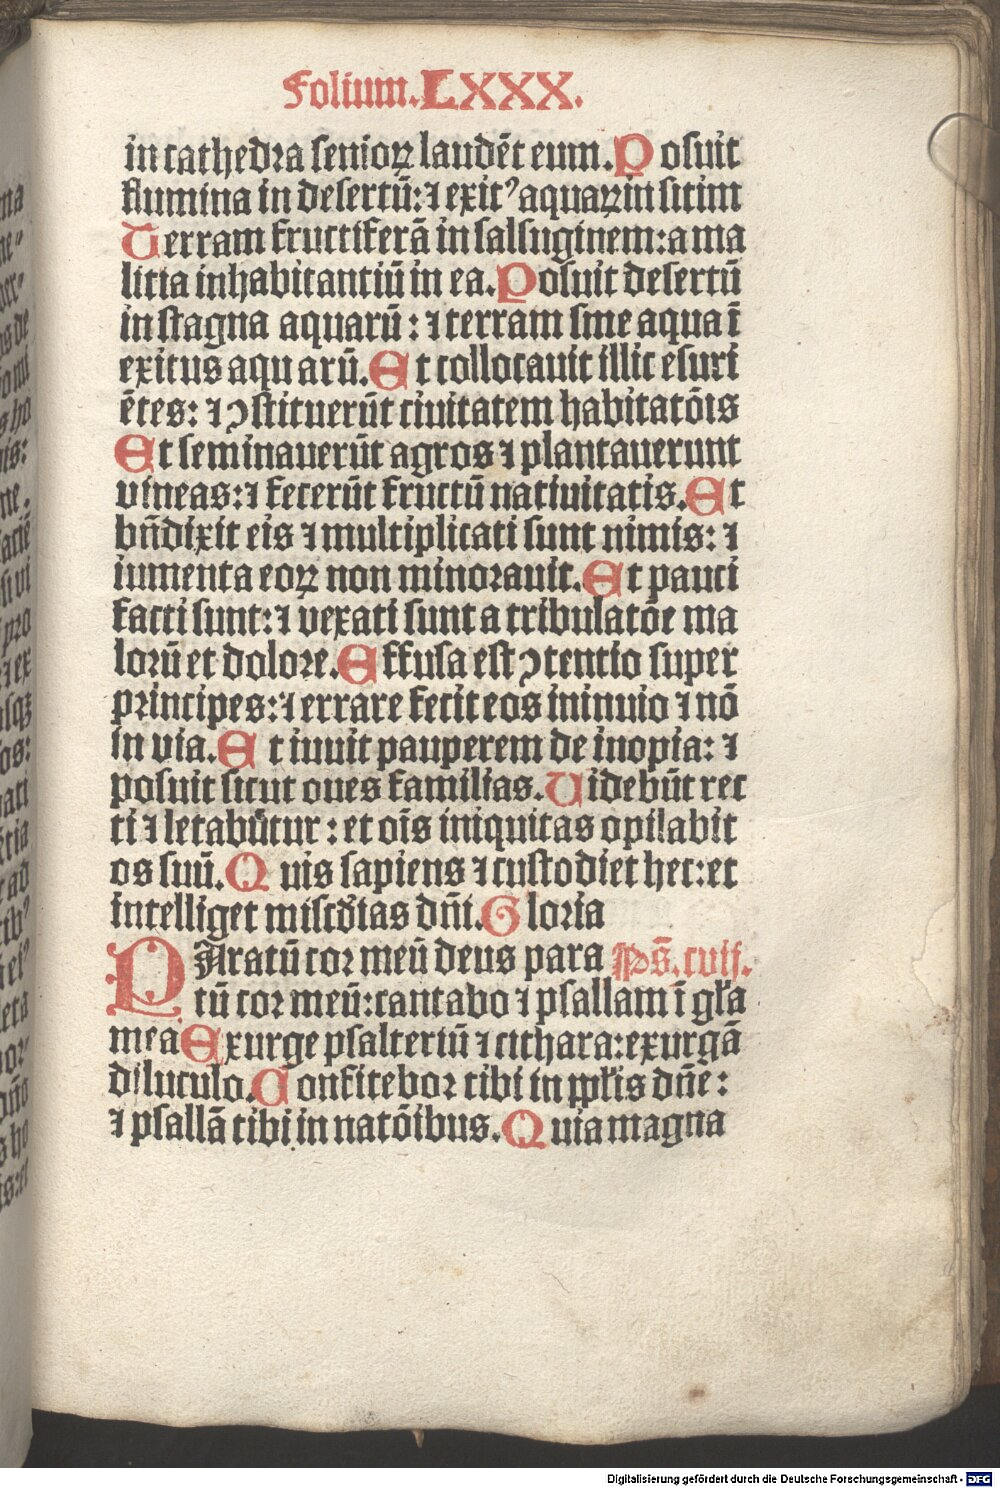 Folium. LXXX.
in cathedra senioꝝ laudēt eum. Posuit
flumina in desertū: ⁊ exitꝰ aquaꝝ in sitim
Terram fructiferā in salsuginem: a ma
litia inhabitantiū in ea. Posuit desertū
in stagna aquarū: ⁊ terram sine aqua ī
exitus aquarū. Et collocauit illic esuri
ētes: ⁊ ↄstituerūt ciuitatem habitatōis
Et seminauerūt agros ⁊ plantauerunt
vineas: ⁊ fecerūt fructū natiuitatis. Et
bn̄dixit eis ⁊ multiplicati sunt nimis: ⁊
iumenta eoꝝ non minorauit. Et pauci
facti sunt: ⁊ vexati sunt a tribulatōe ma
lorū et dolore. Effusa est ↄtentio super
principes: ⁊ errare fecit eos in inuio ⁊ nō
in via. Et iuuit pauperem de inopia: ⁊
posuit sicut oues familias. Uidebūt rec
ti ⁊ letabūtur: et oīs iniquitas opilabit
os suū. Quis sapiens ⁊ custodiet hec: et
intelliget misc̄dias dn̄i. Gloria
PAratū cor meū deus para Ps̄. cvij.
tū cor meū: cantabo ⁊ psallam ī gl̄a
mea Exurge psalteriū ⁊ cithara: exurgā
diluculo. Confitebor tibi in ppl̄is dn̄e:
⁊ psallā tibi in natōibus. Quia magna
Digitalisierung gefördert durch die Deutsche Forschungsgemeinschaft - DFG